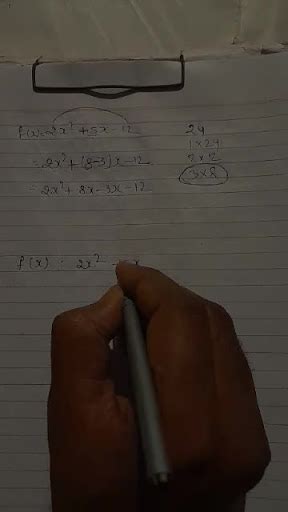 f(x)=2x² + 5x - 12
= 2x² + (8-3)x - 12
= 2x² + 8x - 3x - 12
24
1 x 24
2 x 12
3 x 8
f(x) : 2x² - 5x